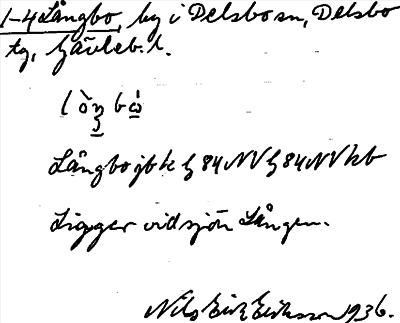 1-4 Långbo, by i Delsbo sn, Delsbo
tg, Gävleb. l.
Långbo jbk G 84 NV G 84 NV kb
Ligger vid sjön Lången.
Nils Erik Eriksson 1936.